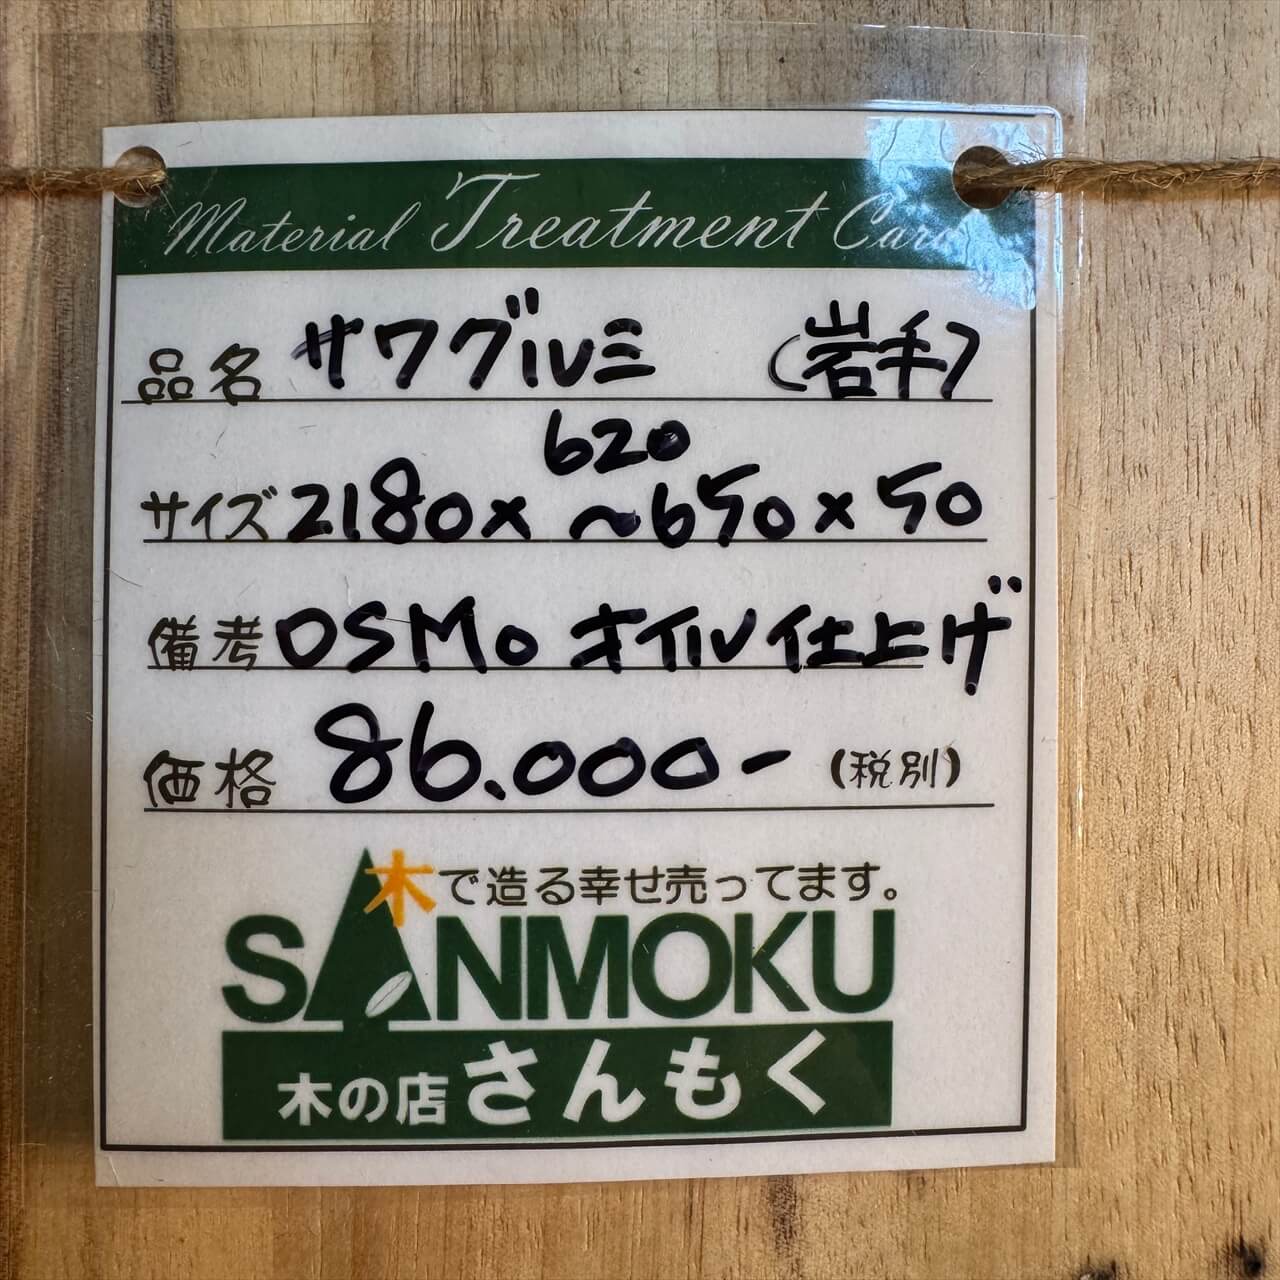 Material Treatment Card
品名 サワグルミ (岩手)
620
サイズ 2180×~650×50
備考 OSMo オイル仕上げ
価格 86.000- (税別)
木で造る幸せ売ってます。
SANMOKU
木の店 さんもく